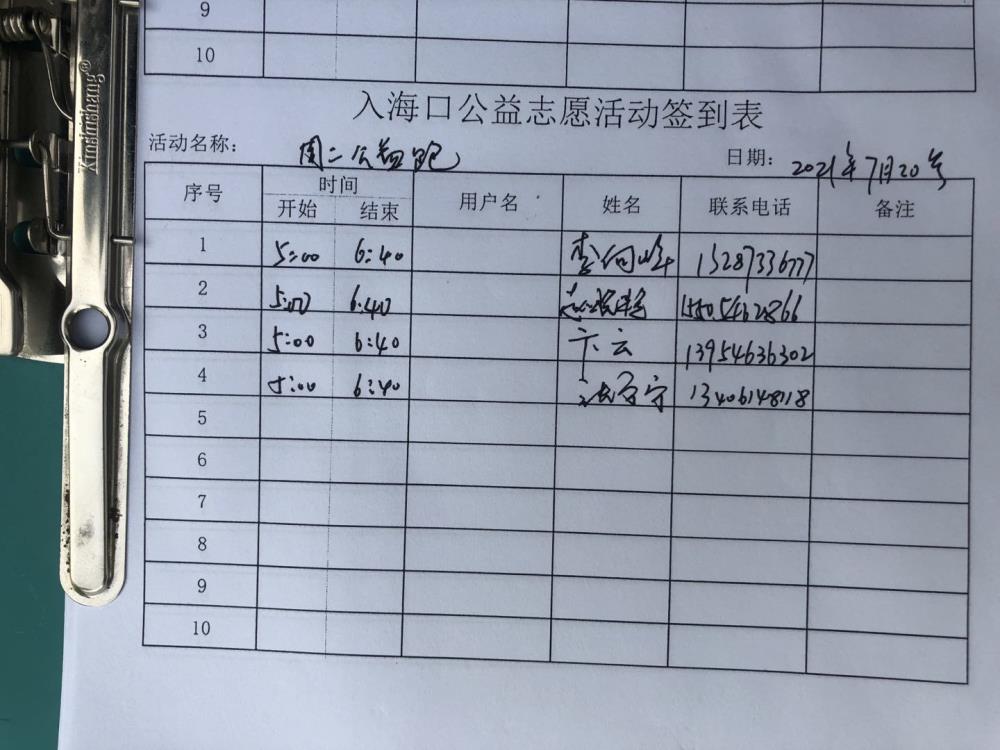 9
10
Xinshishang®
入海口公益志愿活动签到表
活动名称: 周二公益跑 日期: 2021年7月20号
序号 时间 用户名 姓名 联系电话 备注
开始 结束
1 5:00 6:40 李向峰 13287336777
2 5:00 6:40 15505462866
3 5:00 6:40 卞云 13954636302
4 5:00 6:40 13406148118
5
6
7
8
9
10